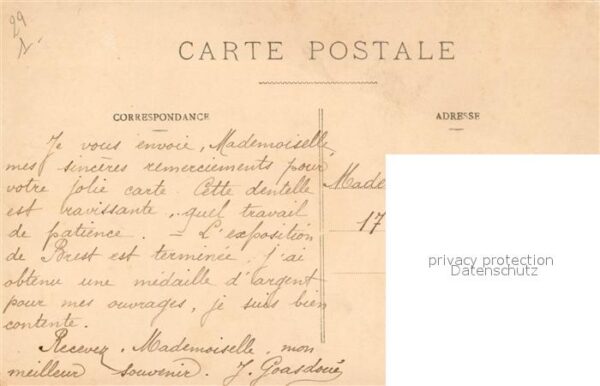 29
CARTE POSTALE
CORRESPONDANCE
ADRESSE
Je vous envoie, Mademoiselle,
mes sincères remerciements pour
votre jolie carte. Cette dentelle
est ravissante, quel travail
de patience. — L'exposition
de Brest est terminée. J'ai
obtenu une médaille d'argent
pour mes ouvrages, je suis bien
contente.
Recevez, Mademoiselle, mon
meilleur souvenir. J. Goasdoué
Made
17
privacy protection
Datenschutz